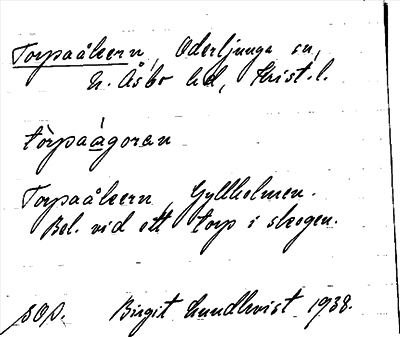 Torpaåkern, Oderljunga sn,
N. Åsbo hd, Krist. l.
tòrpaágoran
Torpaåkern, Gyllholmen.
Bel. vid ett torp i skogen.
sop. Birgit Lundkvist 1938.